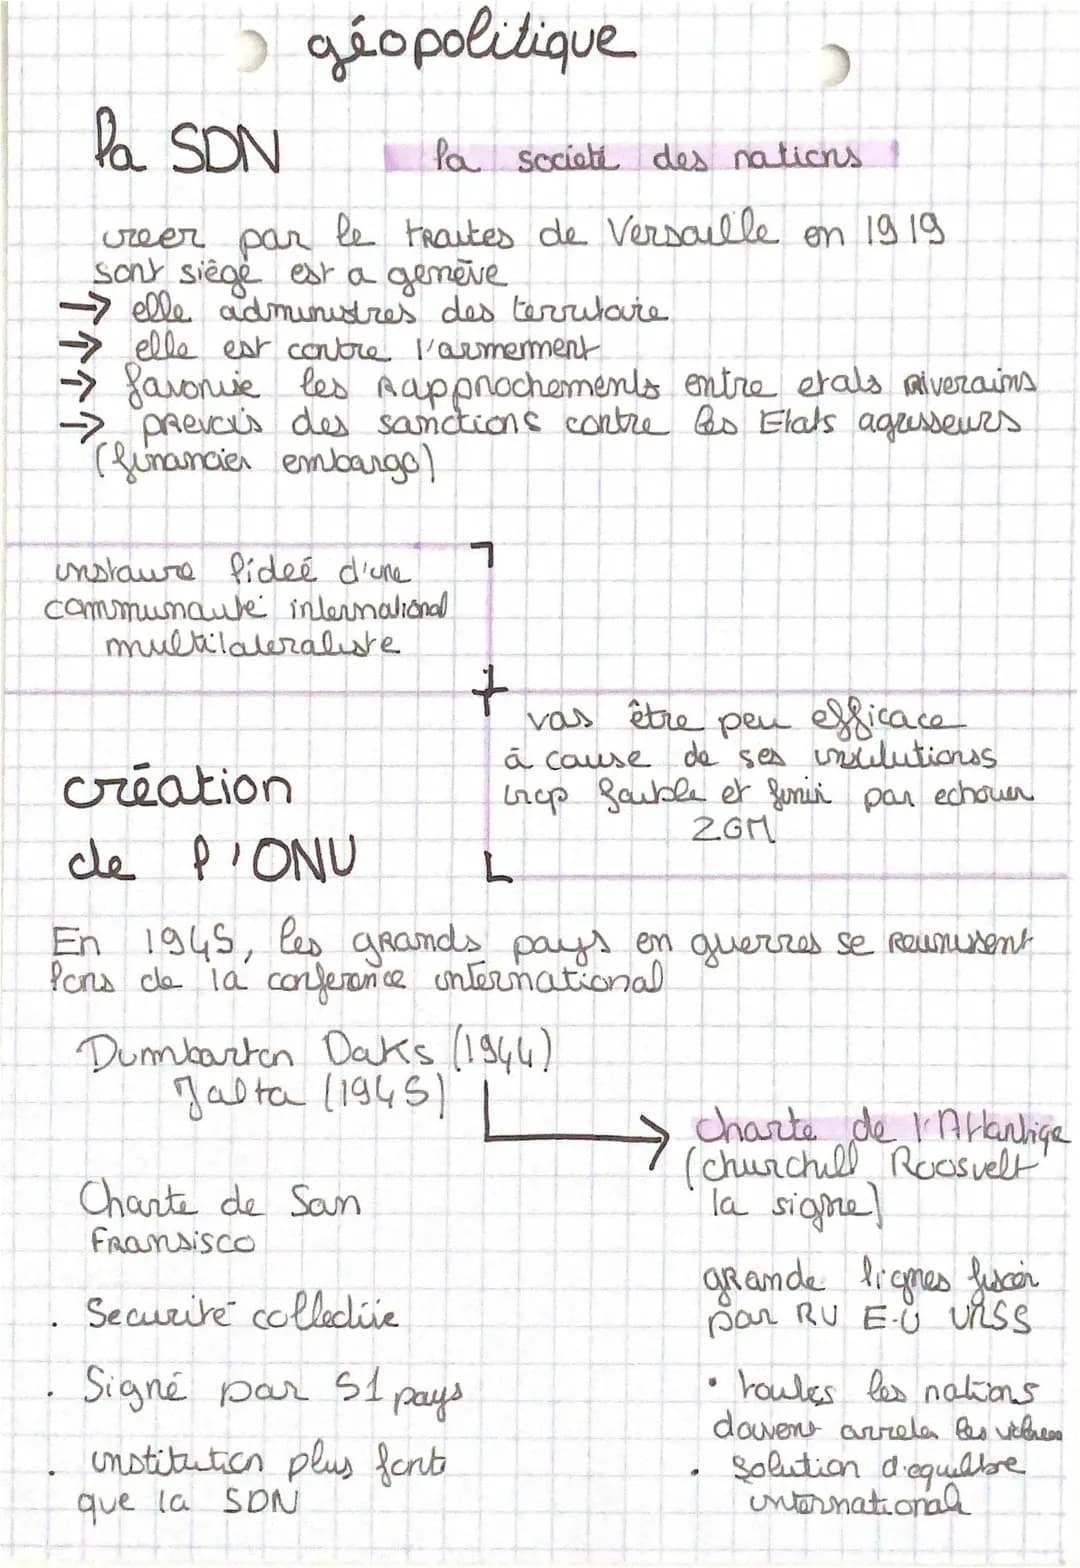 géopolitique
la SDN
la societé des nations
creer par le traites de Versaille en 1919
sont siége est a genève
→ elle administres des territoire
→ elle est contre l'armerment
→ favorise les rapprochements entre etats riverains
→ prevois des sanctions contre les Etats agresseurs
(financier embargo)
instaure l'ideé d'une
communauté international
multilateraliste
+
vas être peu efficace
à cause de ses institutionss
trop faible et finir par echouer
2GM
création
de l'ONU
En 1945, les grands pays en guerres se reunissent
lors de la conference international
Dumbarton Oaks (1944)
Yalta (1945)
→ charte de l'Atlantiqe
(churchill Roosvelt
la signe)
Charte de San
Fransisco
. Securité collective
. Signé par 51 pays
. institution plus forte
que la SDN
grande lignes fixer
par RU E-U URSS
• toutes les nations
doivent arreter les
. solution d'equilbre
international